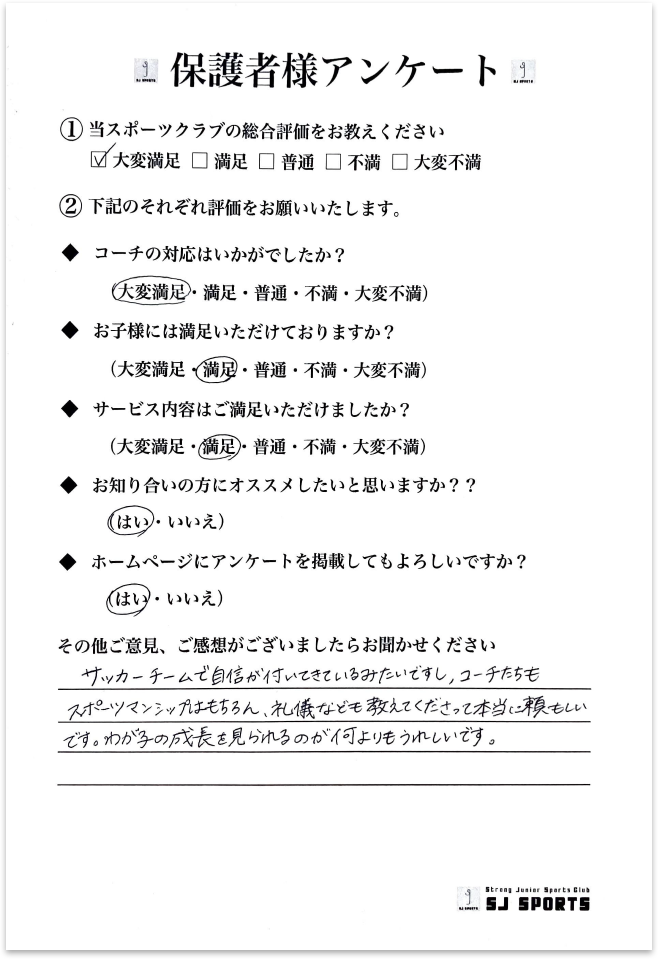 SJ SPORTS 保護者様アンケート SJ SPORTS
① 当スポーツクラブの総合評価をお教えください
☑ 大変満足 □ 満足 □ 普通 □ 不満 □ 大変不満
② 下記のそれぞれ評価をお願いいたします。
◆ コーチの対応はいかがでしたか？
（大変満足・満足・普通・不満・大変不満）
◆ お子様には満足いただけておりますか？
（大変満足・満足・普通・不満・大変不満）
◆ サービス内容はご満足いただけましたか？
（大変満足・満足・普通・不満・大変不満）
◆ お知り合いの方にオススメしたいと思いますか？？
（はい・いいえ）
◆ ホームページにアンケートを掲載してもよろしいですか？
（はい・いいえ）
その他ご意見、ご感想がございましたらお聞かせください
サッカーチームで自信が付いてきているみたいですし、コーチたちも
スポーツマンシップはもちろん、礼儀なども教えてくださって本当に頼もしい
です。わが子の成長を見られるのが何よりもうれしいです。
Strong Junior Sports Club
SJ SPORTS SJ SPORTS